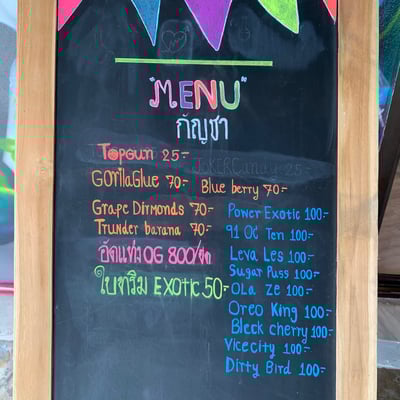 "MENU"
กัญชา
Topgun 25.-
JOKER Candy 25.-
GorillaGlue 70.-
Blue berry 70.-
Grape Dirmonds 70.-
Trunder banana 70.-
อัดแท่ง OG 800/ขีด
ใบทริม EXOTIC 50.-
Power Exotic 100.-
91 OC Ten 100.-
Leva Les 100.-
Sugar Puss 100.-
OLa Ze 100.-
Oreo King 100.-
Bleck cherry 100.-
Vice city 100.-
Dirty Bird 100.-